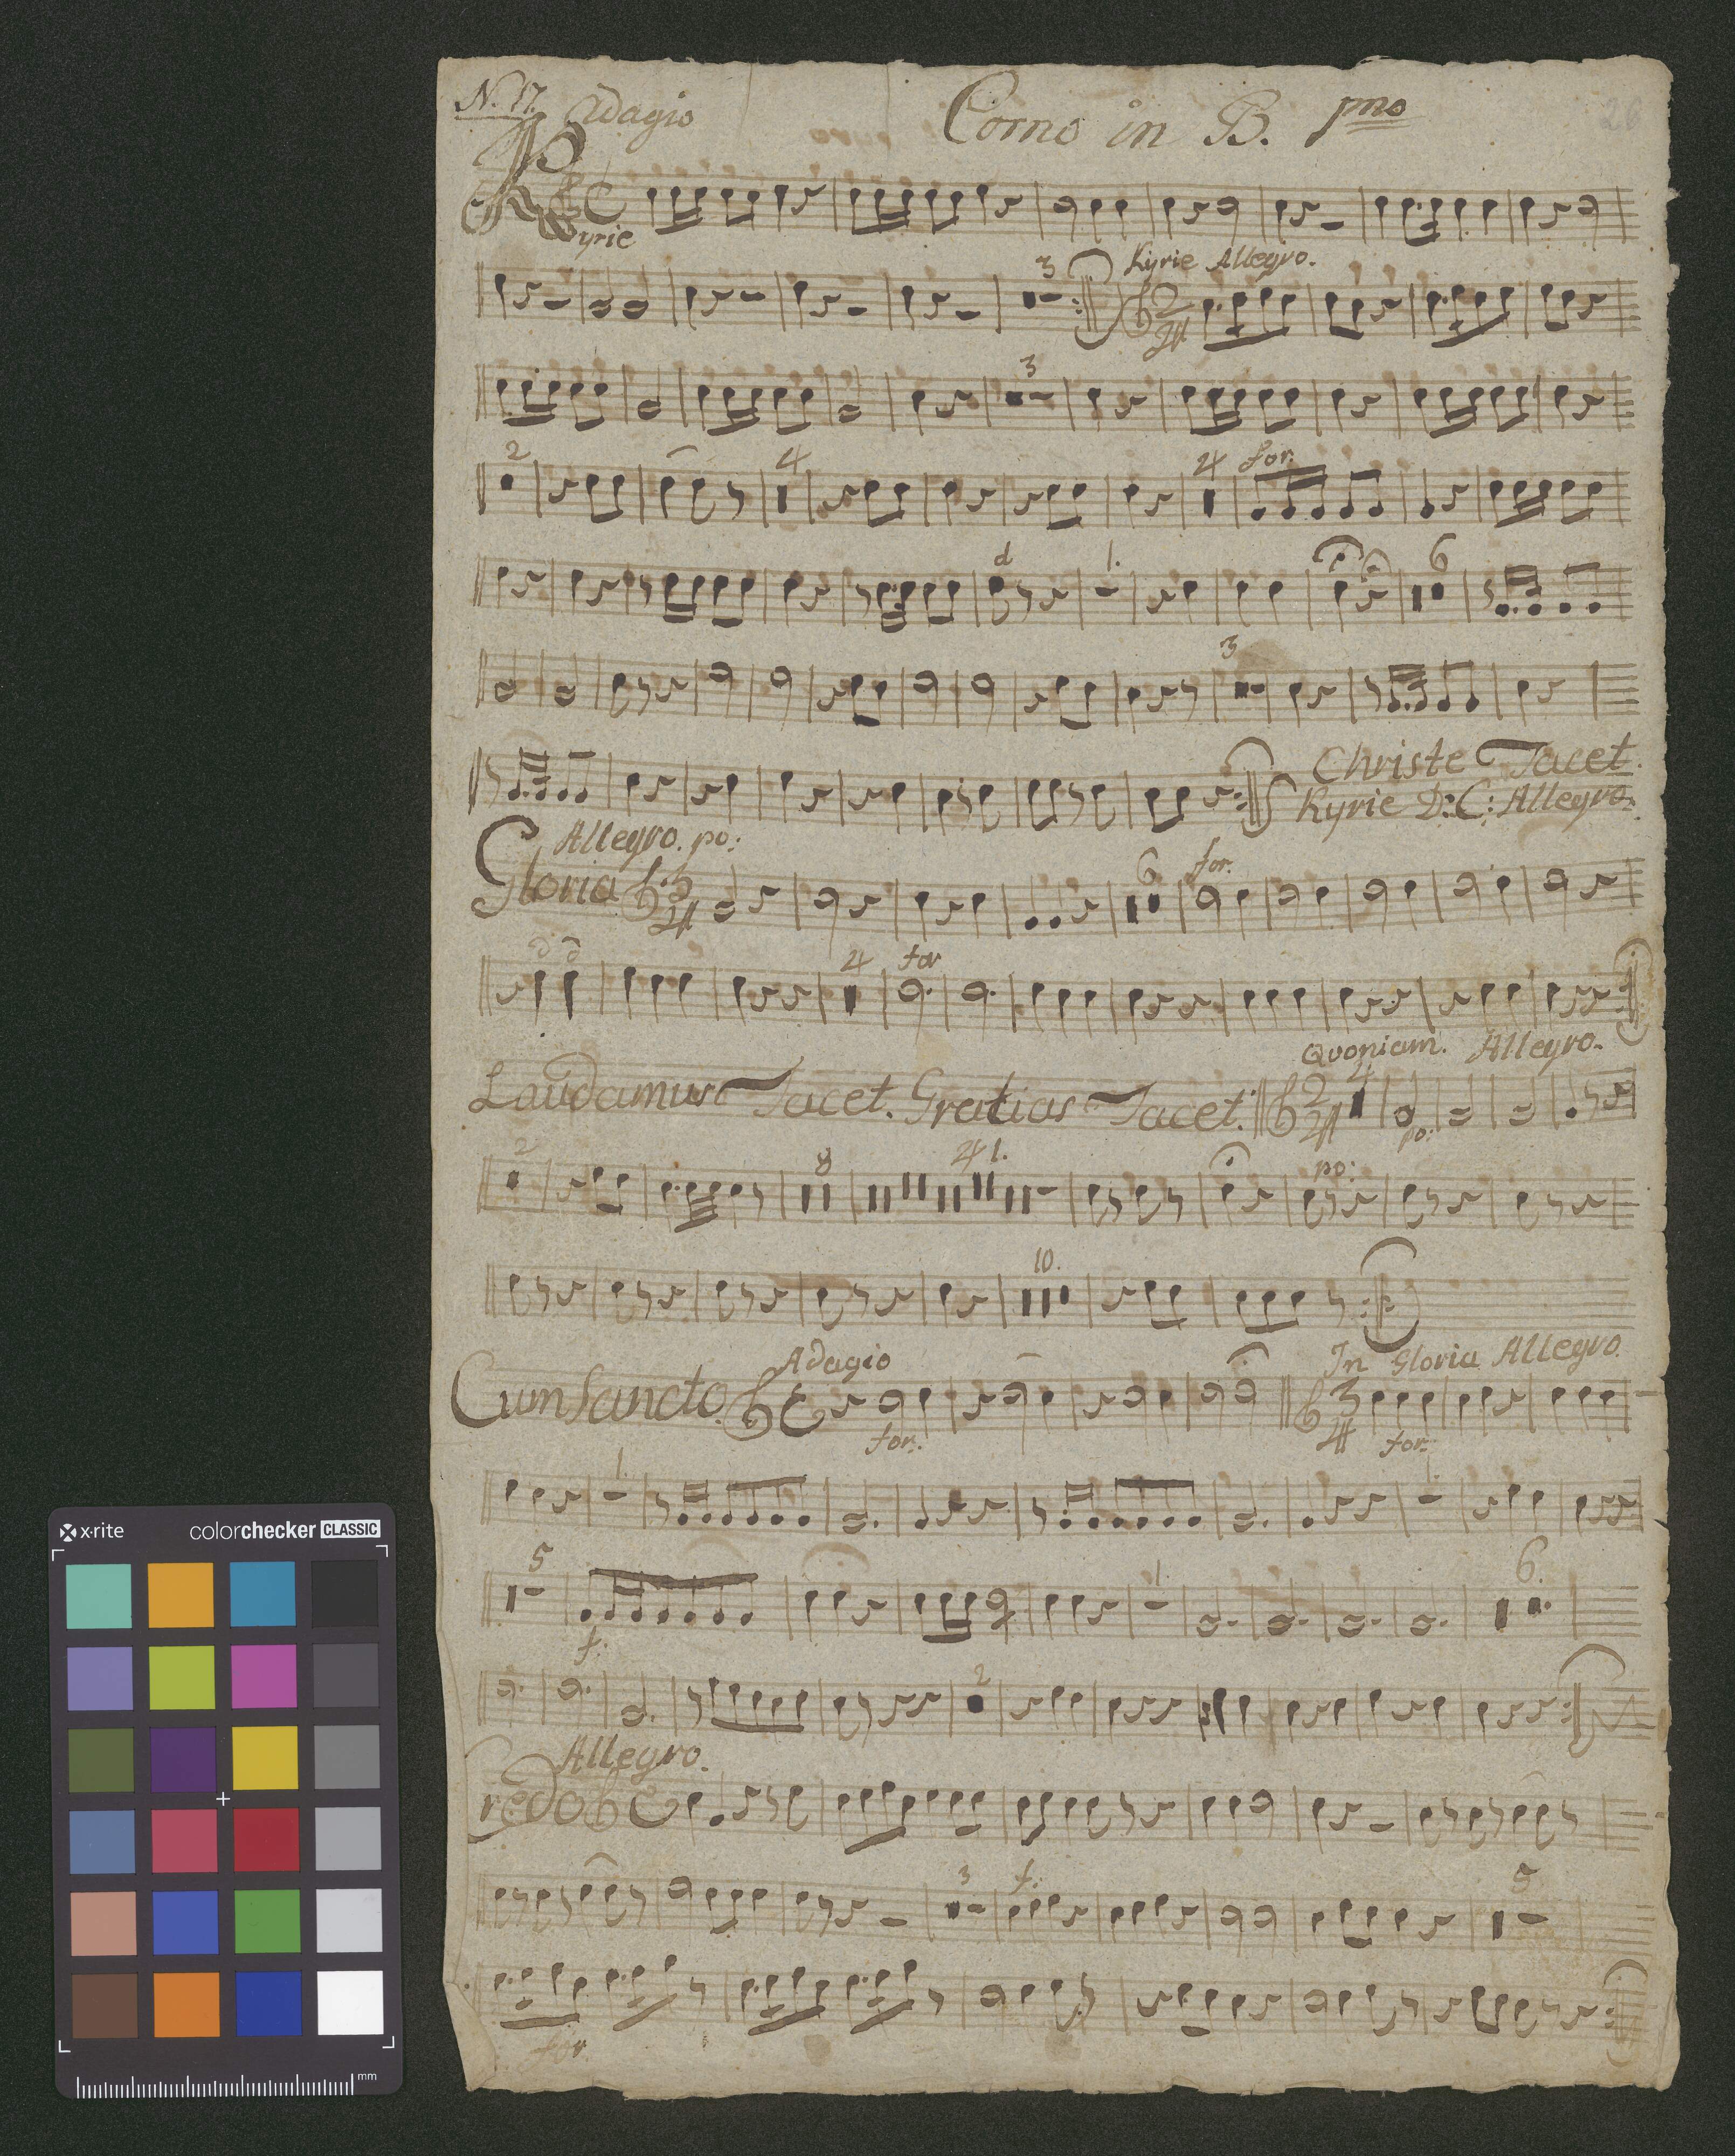 N. 17. Adagio Corno in B. pmo 26
Kyrie
3 Kyrie Allegro.
2
4
3
2 4 4 for.
1. 6
3
Christe Tacet.
Kyrie D:C: Allegro.
Allegro. po:
Gloria 3 4 6 for.
4 for
Quoniam. Allegro.
Laudamus Tacet. Gratias Tacet. 2 4 4 po:
2 8 41. po:
10.
Adagio In Gloria Allegro
Cum Sancto. for. 3 4 for:
1. 1.
5 f: 1. 6.
2
Allegro.
Credo
3 f: 5
for
x·rite colorchecker CLASSIC
mm